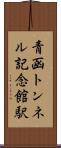 青函トンネ
ル記念館駅